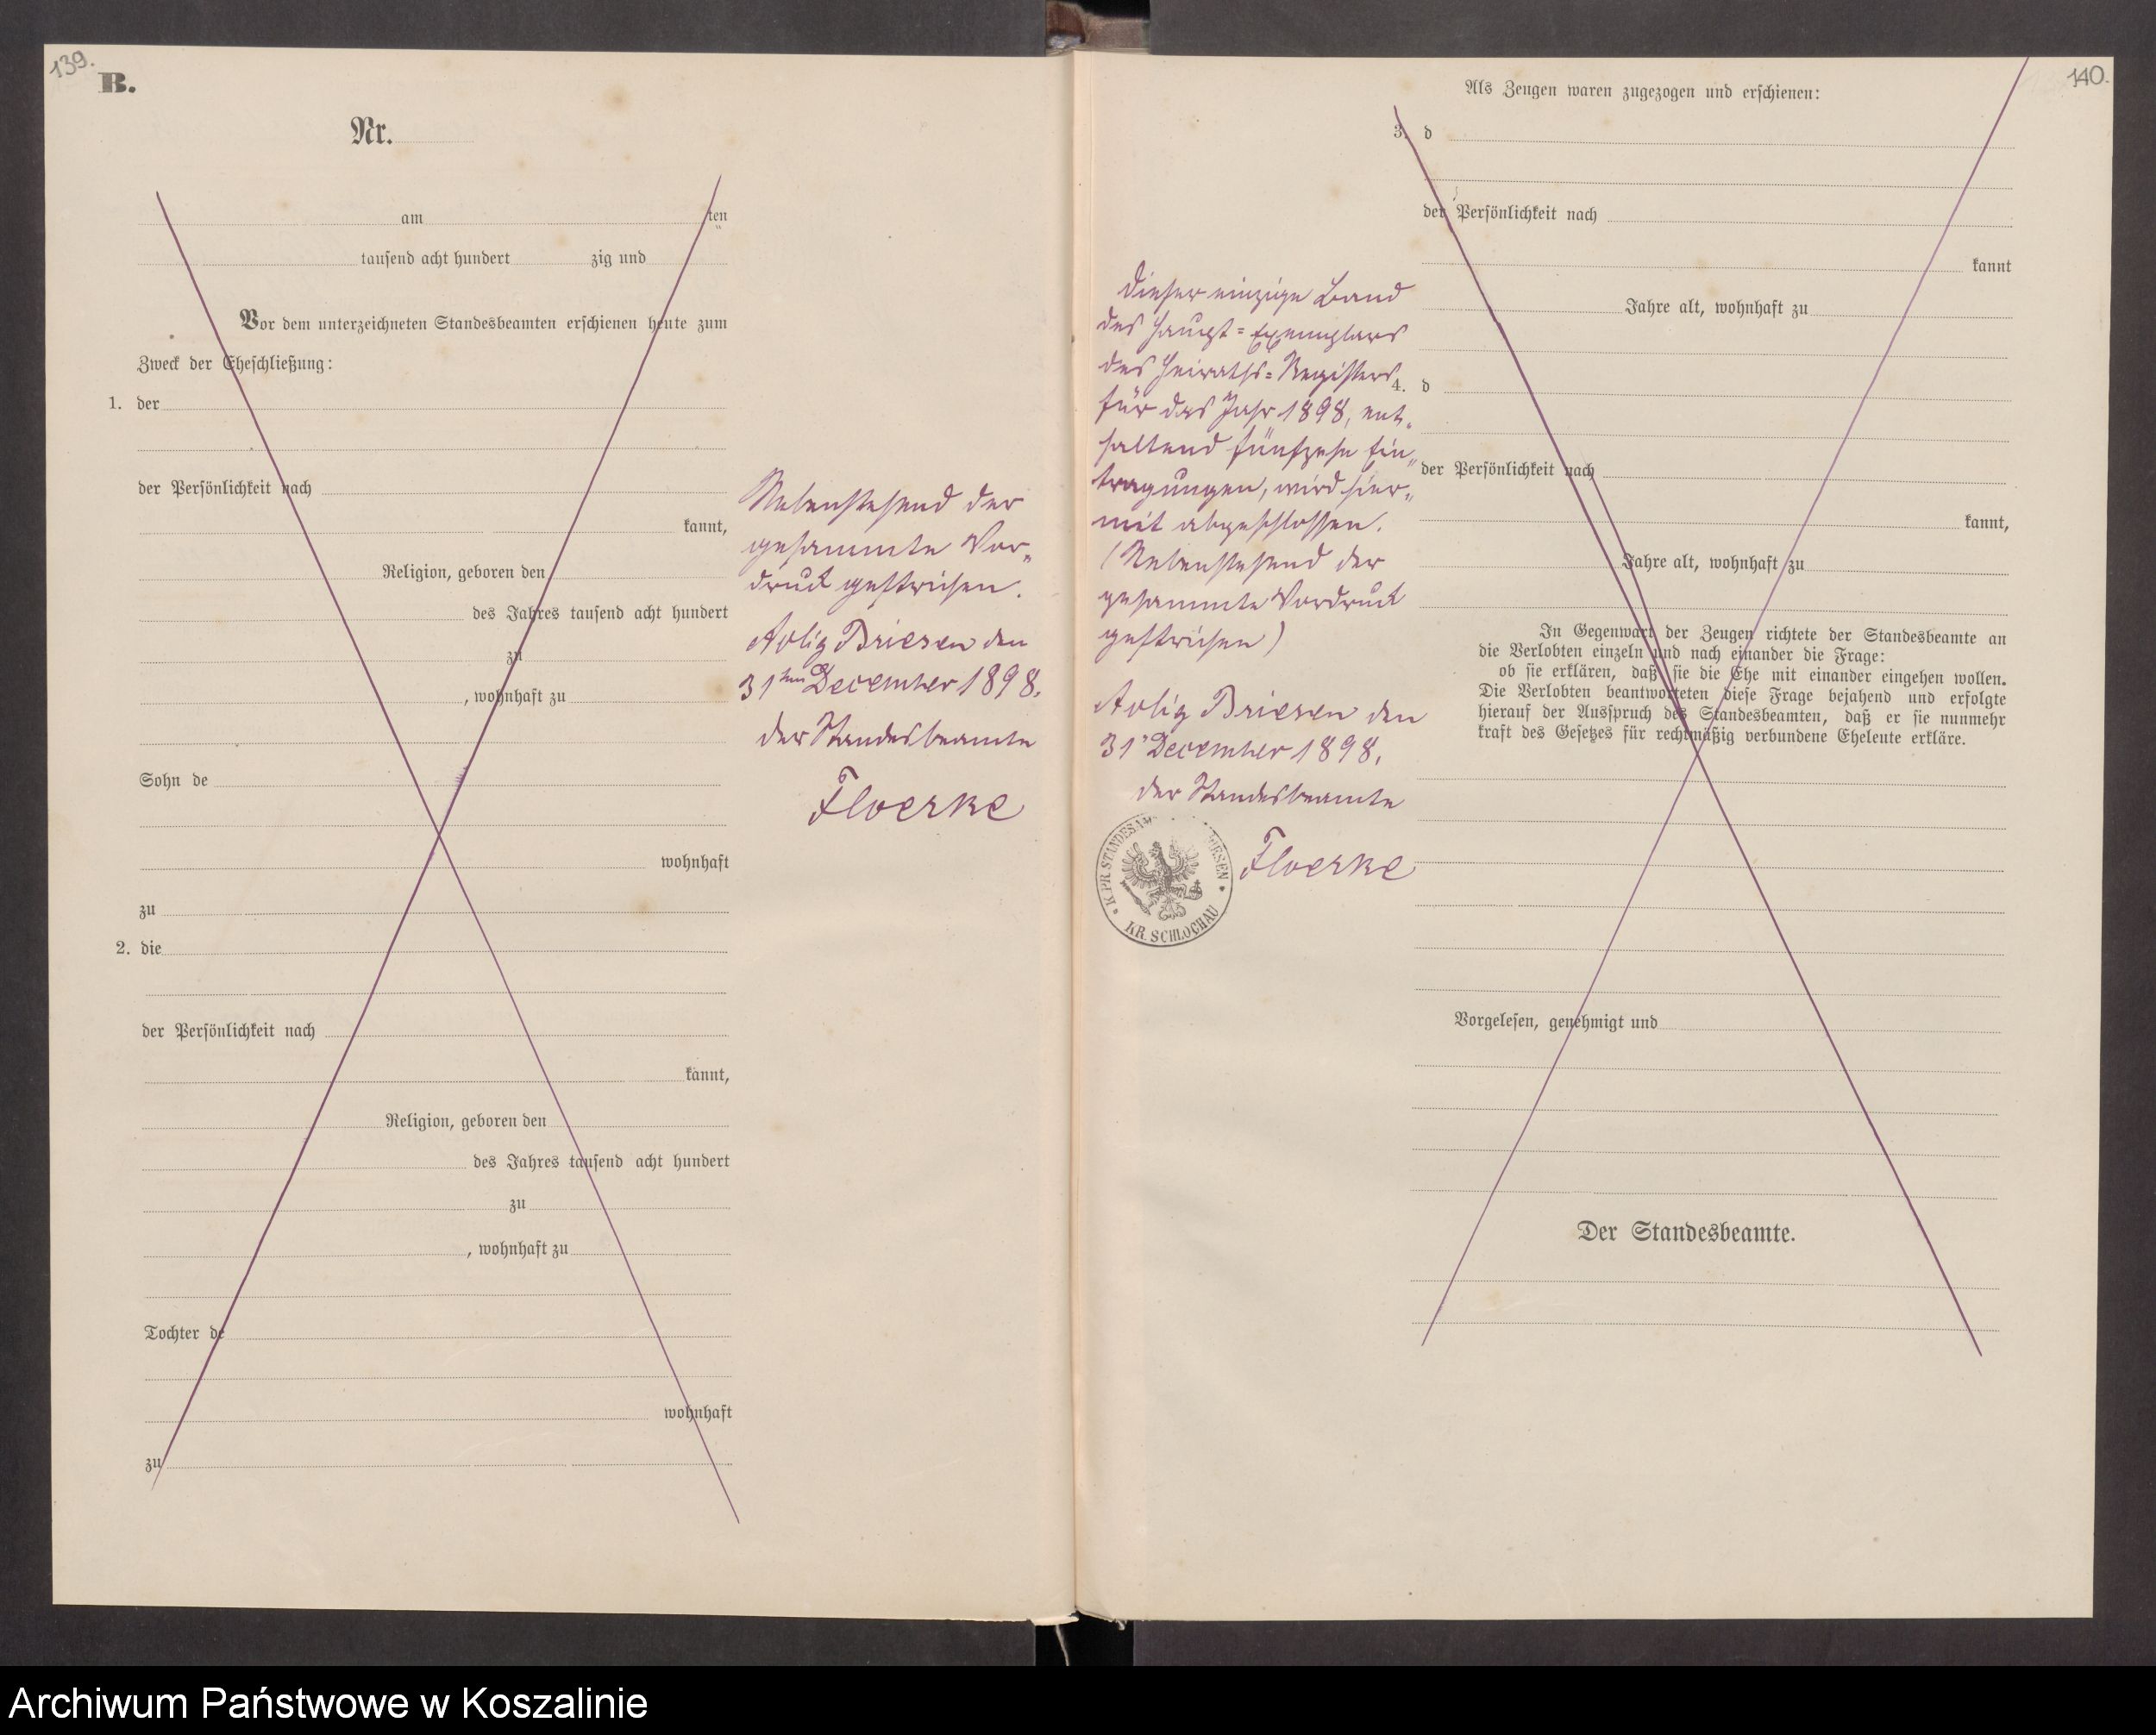 139.
B.
Nr.
am ten
tausend acht hundert zig und
Vor dem unterzeichneten Standesbeamten erschienen heute zum
Zweck der Eheschließung:
1. der
der Persönlichkeit nach
kannt,
Religion, geboren den
des Jahres tausend acht hundert
zu
, wohnhaft zu
Sohn de
wohnhaft
zu
2. die
der Persönlichkeit nach
kannt,
Religion, geboren den
des Jahres tausend acht hundert
zu
, wohnhaft zu
Tochter de
wohnhaft
zu
Nebenstehend der
gesammte Vor-
druck gestrichen.
Adlig Briesen den
31ten December 1898.
Der Standesbeamte
Floerke
140.
Dieser einzige Band
des Haupt-Exemplars
des Heiraths-Registers
für das Jahr 1898, ent-
haltend fünfzehn Ein-
tragungen, wird hier-
mit abgeschlossen.
(Nebenstehend der
gesammte Vordruck
gestrichen)
Adlig Briesen den
31' December 1898.
Der Standesbeamte
Floerke
K. PR. STANDESAM RIESEN
KR. SCHLOCHAU
Als Zeugen waren zugezogen und erschienen:
3. d
der Persönlichkeit nach
kannt
Jahre alt, wohnhaft zu
4. d
der Persönlichkeit nach
kannt,
Jahre alt, wohnhaft zu
In Gegenwart der Zeugen richtete der Standesbeamte an
die Verlobten einzeln und nach einander die Frage:
ob sie erklären, daß sie die Ehe mit einander eingehen wollen.
Die Verlobten beantworteten diese Frage bejahend und erfolgte
hierauf der Ausspruch des Standesbeamten, daß er sie nunmehr
kraft des Gesetzes für rechtmäßig verbundene Eheleute erkläre.
Vorgelesen, genehmigt und
Der Standesbeamte.
Archiwum Państwowe w Koszalinie